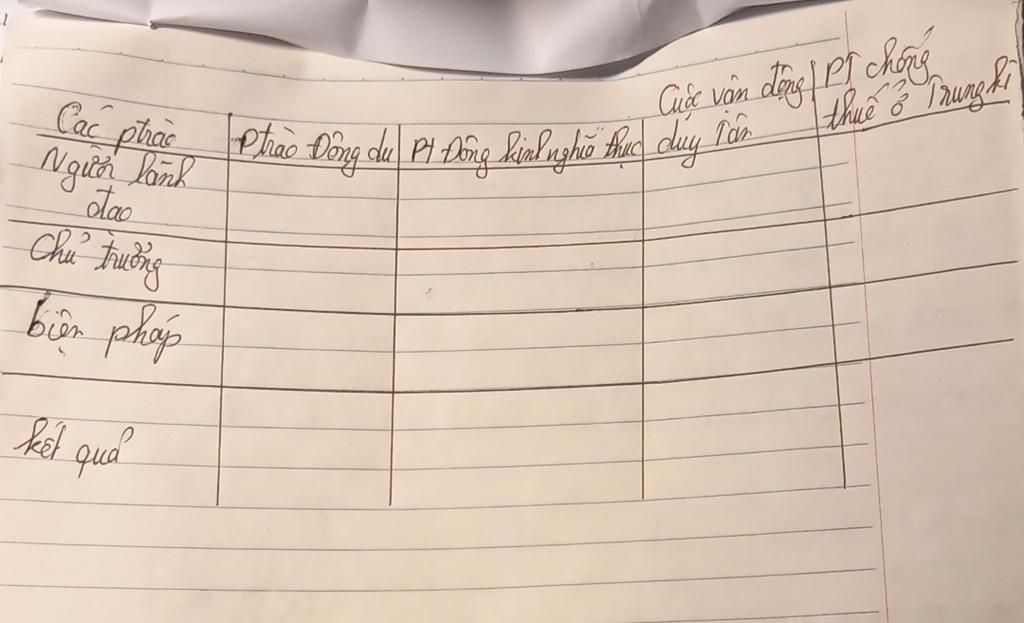 Các ptrào
ptrào Đông du
PT Đông kinh nghĩa thục
Cuộc vận động
duy Tân
PT chống
thuế ở Trung kì
Người lãnh
đạo
Chủ trương
biện pháp
kết quả